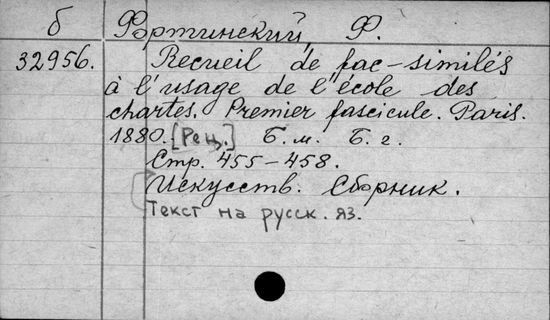 б Фортинский, Ф.
32956. Recueil de fac-similés
à l'usage de l'école des
chartes. Premier fascicule. Paris.
1880. [Рец.] Б. м. Б. г.
Стр. 455-458.
Искусств. Сборник.
Текст на русск. яз.